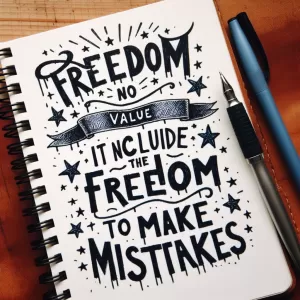 FREEDOM
NO
VALUE
IT NCLUIDE
THE
FREEIOM
TO MAKE
MISTTAKES